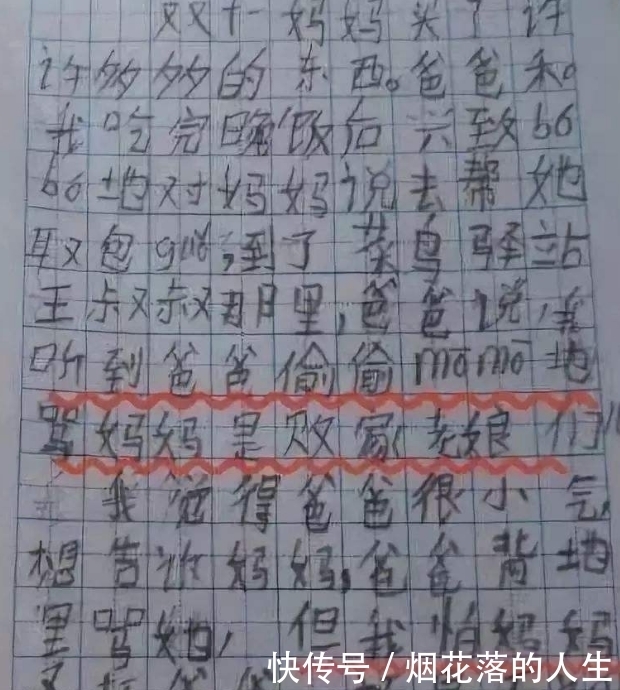 双十一妈妈买了许
许多多的东西。爸爸和。
我吃完晚饭后兴致bó
bó地对妈妈说去帮她
取包guǒ,到了菜鸟驿站
王叔叔那里,爸爸说,我
听到爸爸偷偷mōmō地
骂妈妈是败家老娘们儿
我觉得爸爸很小气,
想告诉妈妈,爸爸背地
里骂她,但我怕妈妈
快传号 / 烟花落的人生